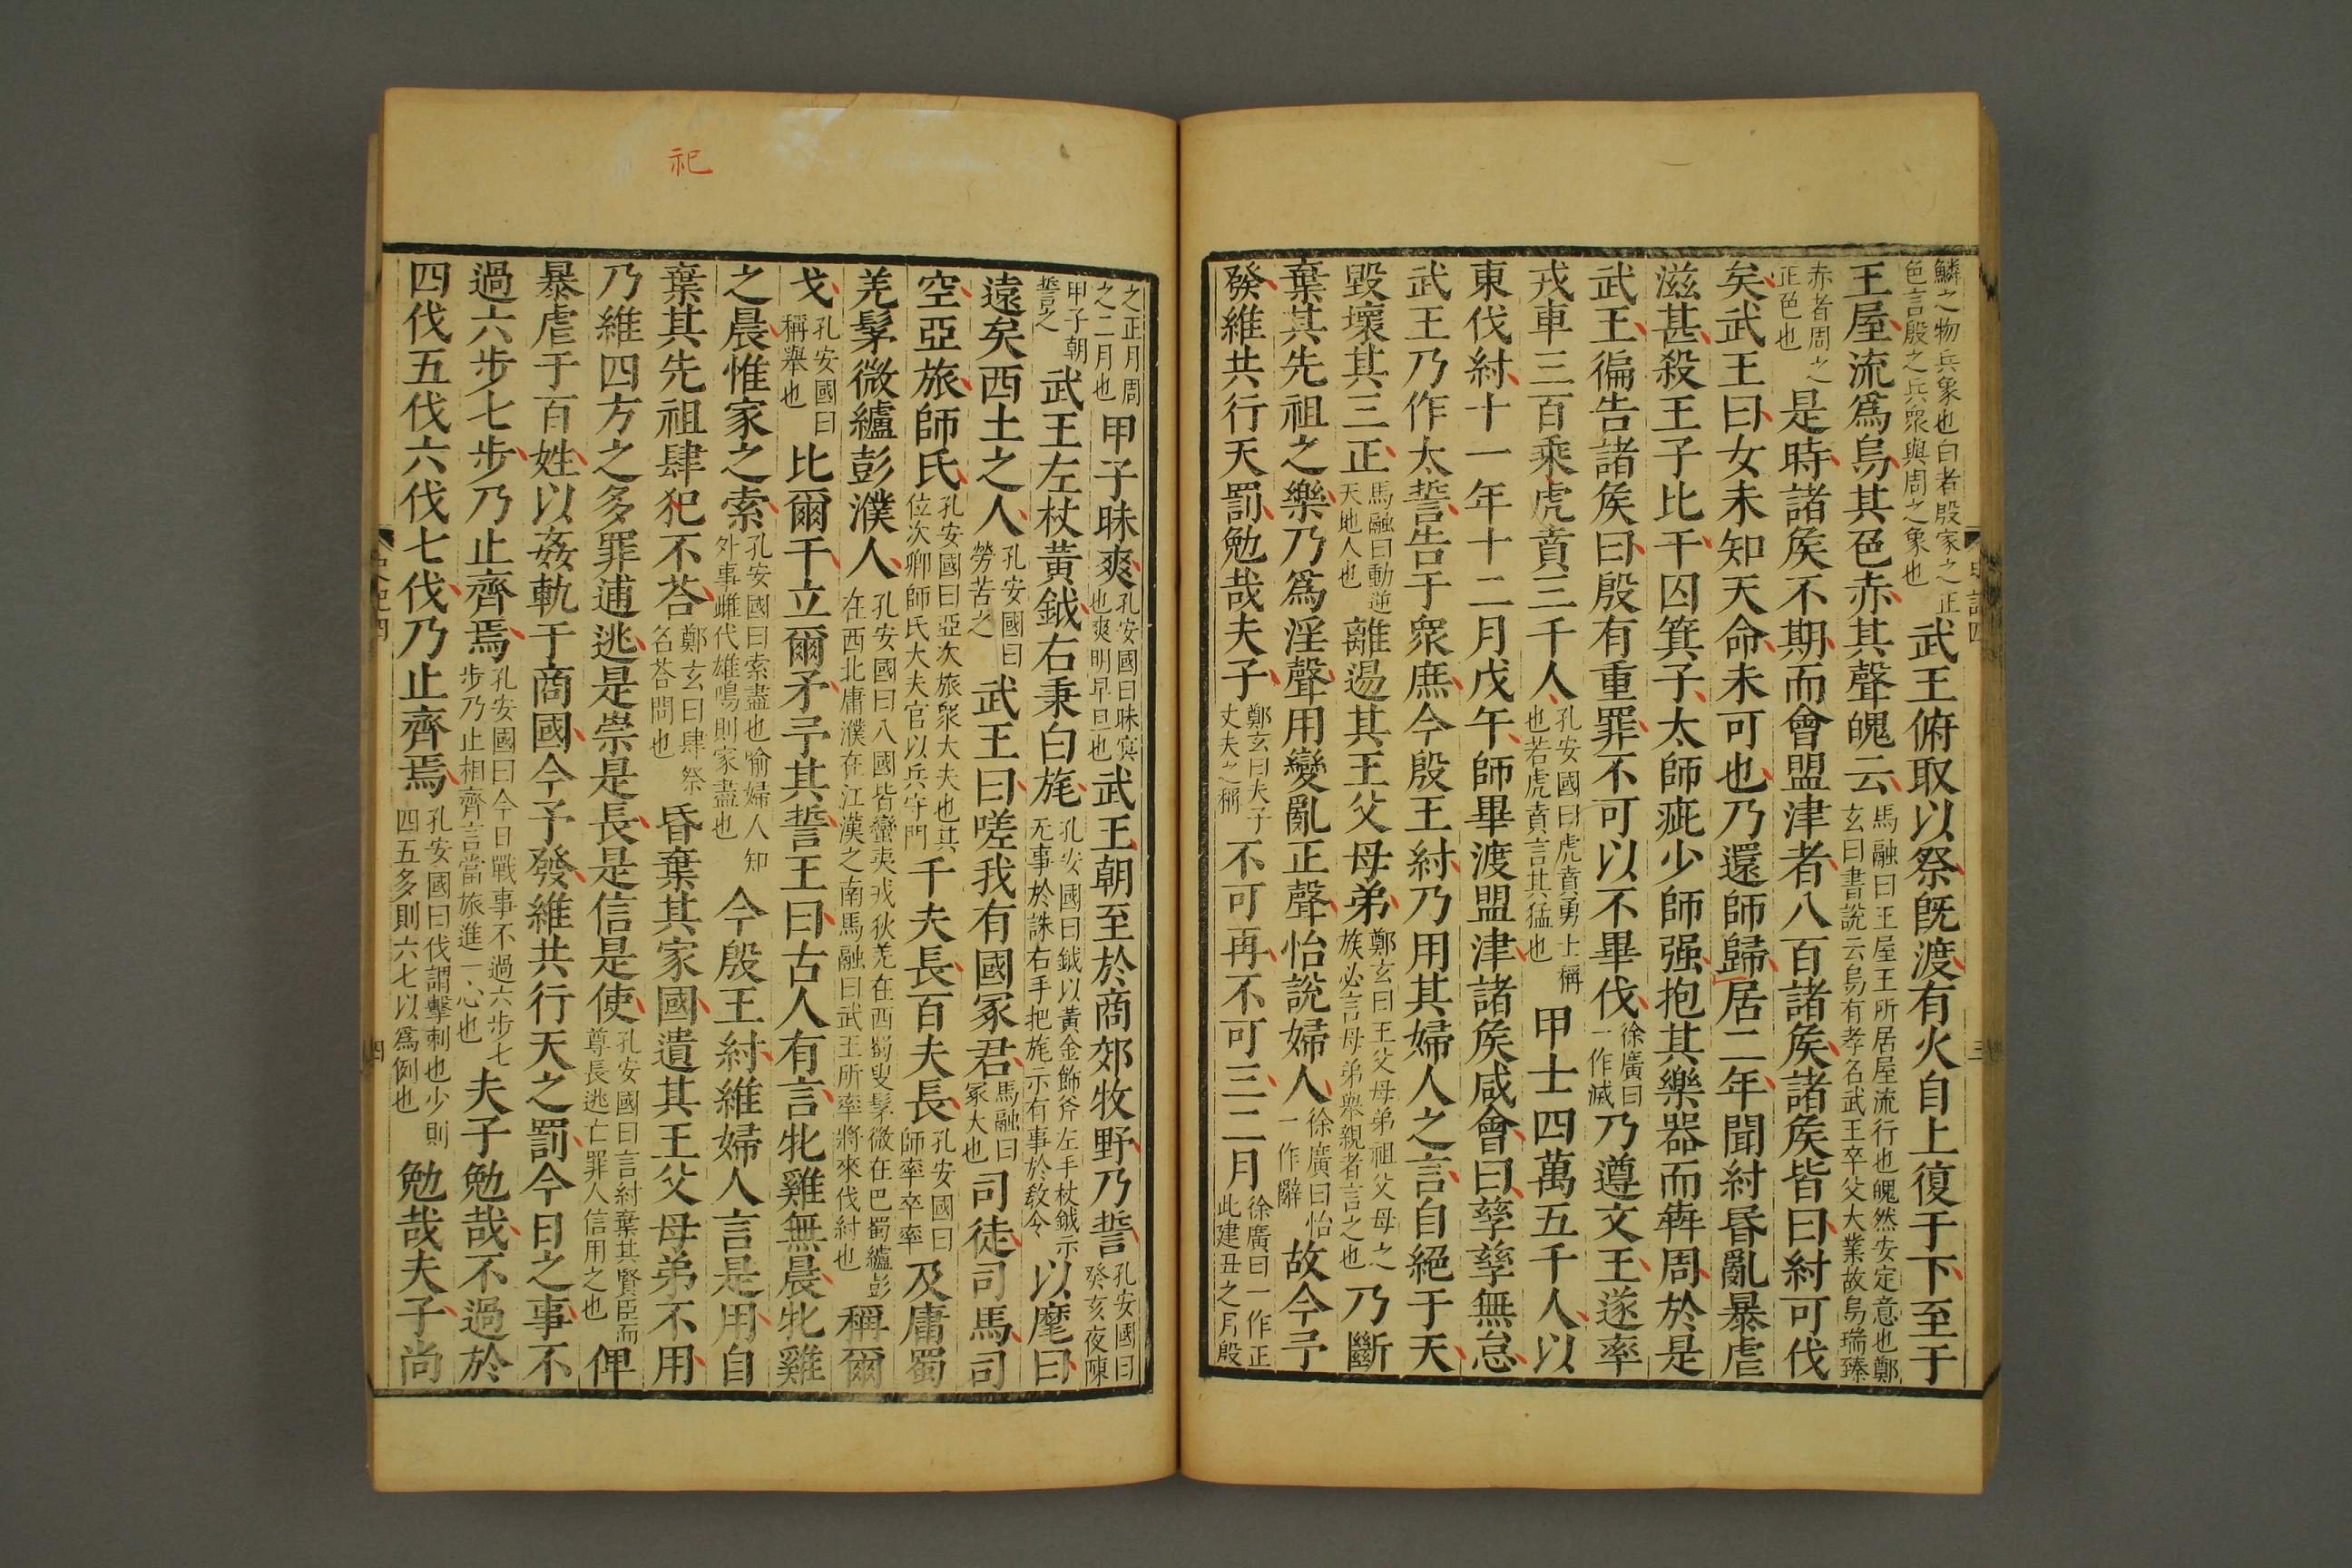 鱗之物兵象也白者殷家之正
色言殷之兵眾與周之象也
武王俯取以祭旣渡有火自上復于下至于
王屋流爲烏其色赤其聲魄云
馬融曰王屋王所居屋流行也魄然安定意也鄭
玄曰書說云烏有孝名武王卒父大業故烏瑞臻
赤者周之
正色也
是時諸矦不期而會盟津者八百諸矦諸矦皆曰紂可伐
矣武王曰女未知天命未可也乃還師歸居二年聞紂昬亂暴虐
滋甚殺王子比干囚箕子太師疵少師强抱其樂器而犇周於是
武王徧告諸矦曰殷有重罪不可以不畢伐
徐廣曰
一作滅
乃遵文王遂率
戎車三百乘虎賁三千人
孔安國曰虎賁勇士稱
也若虎賁言其猛也
甲士四萬五千人以
東伐紂十一年十二月戊午師畢渡盟津諸矦咸會曰孳孳無怠
武王乃作太誓告于眾庶今殷王紂乃用其婦人之言自絕于天
毀壞其三正
馬融曰動逆
天地人也
離逷其王父母弟
鄭玄曰王父母弟祖父母之
族必言母弟舉親者言之也
乃斷
棄其先祖之樂乃爲淫聲用變亂正聲怡說婦人
徐廣曰怡
一作辭
故今予
發維共行天罰勉哉夫子
鄭玄曰夫子
丈夫之稱
不可再不可三二月
徐廣曰一作正
此建丑之月殷
之正月周
之二月也
甲子昧爽
孔安國曰昧㝠
也爽明早旦也
武王朝至於商郊牧野乃誓
孔安國曰
癸亥夜陳
甲子朝
誓之
武王左杖黃鉞右秉白旄
孔安國曰鉞以黃金飾斧左手杖鉞示
无事於誅右手把旄示有事於敎令
以麾曰
遠矣西土之人
孔安國曰
勞苦之
武王曰嗟我有國冢君
馬融曰
冢大也
司徒司馬司
空亞旅師氏
孔安國曰亞次旅眾大夫也其
位次卿師氏大夫官以兵守門
千夫長百夫長
孔安國曰
師率卒率
及庸蜀
羌髳微纑彭濮人
孔安國曰八國皆蠻夷戎狄羌在西蜀叟髳微在巴蜀纑彭
在西北庸濮在江漢之南馬融曰武王所率將來伐紂也
稱爾
戈
孔安國曰
稱舉也
比爾干立爾矛予其誓王曰古人有言牝雞無晨牝雞
之晨惟家之索
孔安國曰索盡也喻婦人知
外事雌代雄鳴則家盡也
今殷王紂維婦人言是用自
棄其先祖肆祀不荅
鄭玄曰肆祭
名荅問也
昏棄其家國遺其王父母弟不用
乃維四方之多罪逋逃是崇是長是信是使
孔安國曰言紂棄其賢臣而
尊長逃亡罪人信用之也
俾
暴虐于百姓以姦軌于商國今予發維共行天之罰今日之事不
過六步七步乃止齊焉
孔安國曰今日戰事不過六步七
步乃止相齊言當旅進一心也
夫子勉哉不過於
四伐五伐六伐七伐乃止齊焉
孔安國曰伐謂擊刺也少則
四五多則六七以爲例也
勉哉夫子尚
祀
四